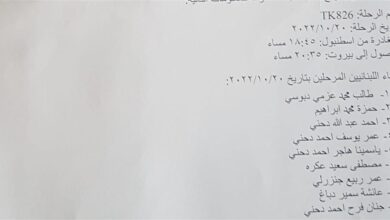 م الرحلة: TK826
يخ الرحلة: ٢٠٢٢/١٠/٢٠
غادرة من اسطنبول: ١٨:٤٥ مساء
صول إلى بيروت: ٢٠:٣٥ مساء
اء اللبنانيين المرحلين بتاريخ ٢٠٢٢/١٠/٢٠:
١- طالب محمد عزمي دبوسي
- حمزة محمد ابراهيم
- احمد عبد الله دحني
- عمر يوسف احمد دحني
- ياسمينا هاجر احمد دحني
- مصطفى سعيد عكره
- عمر ربيع جنزرلي
- عائشة سمير دباغ
- جنان فرح احمد دحني